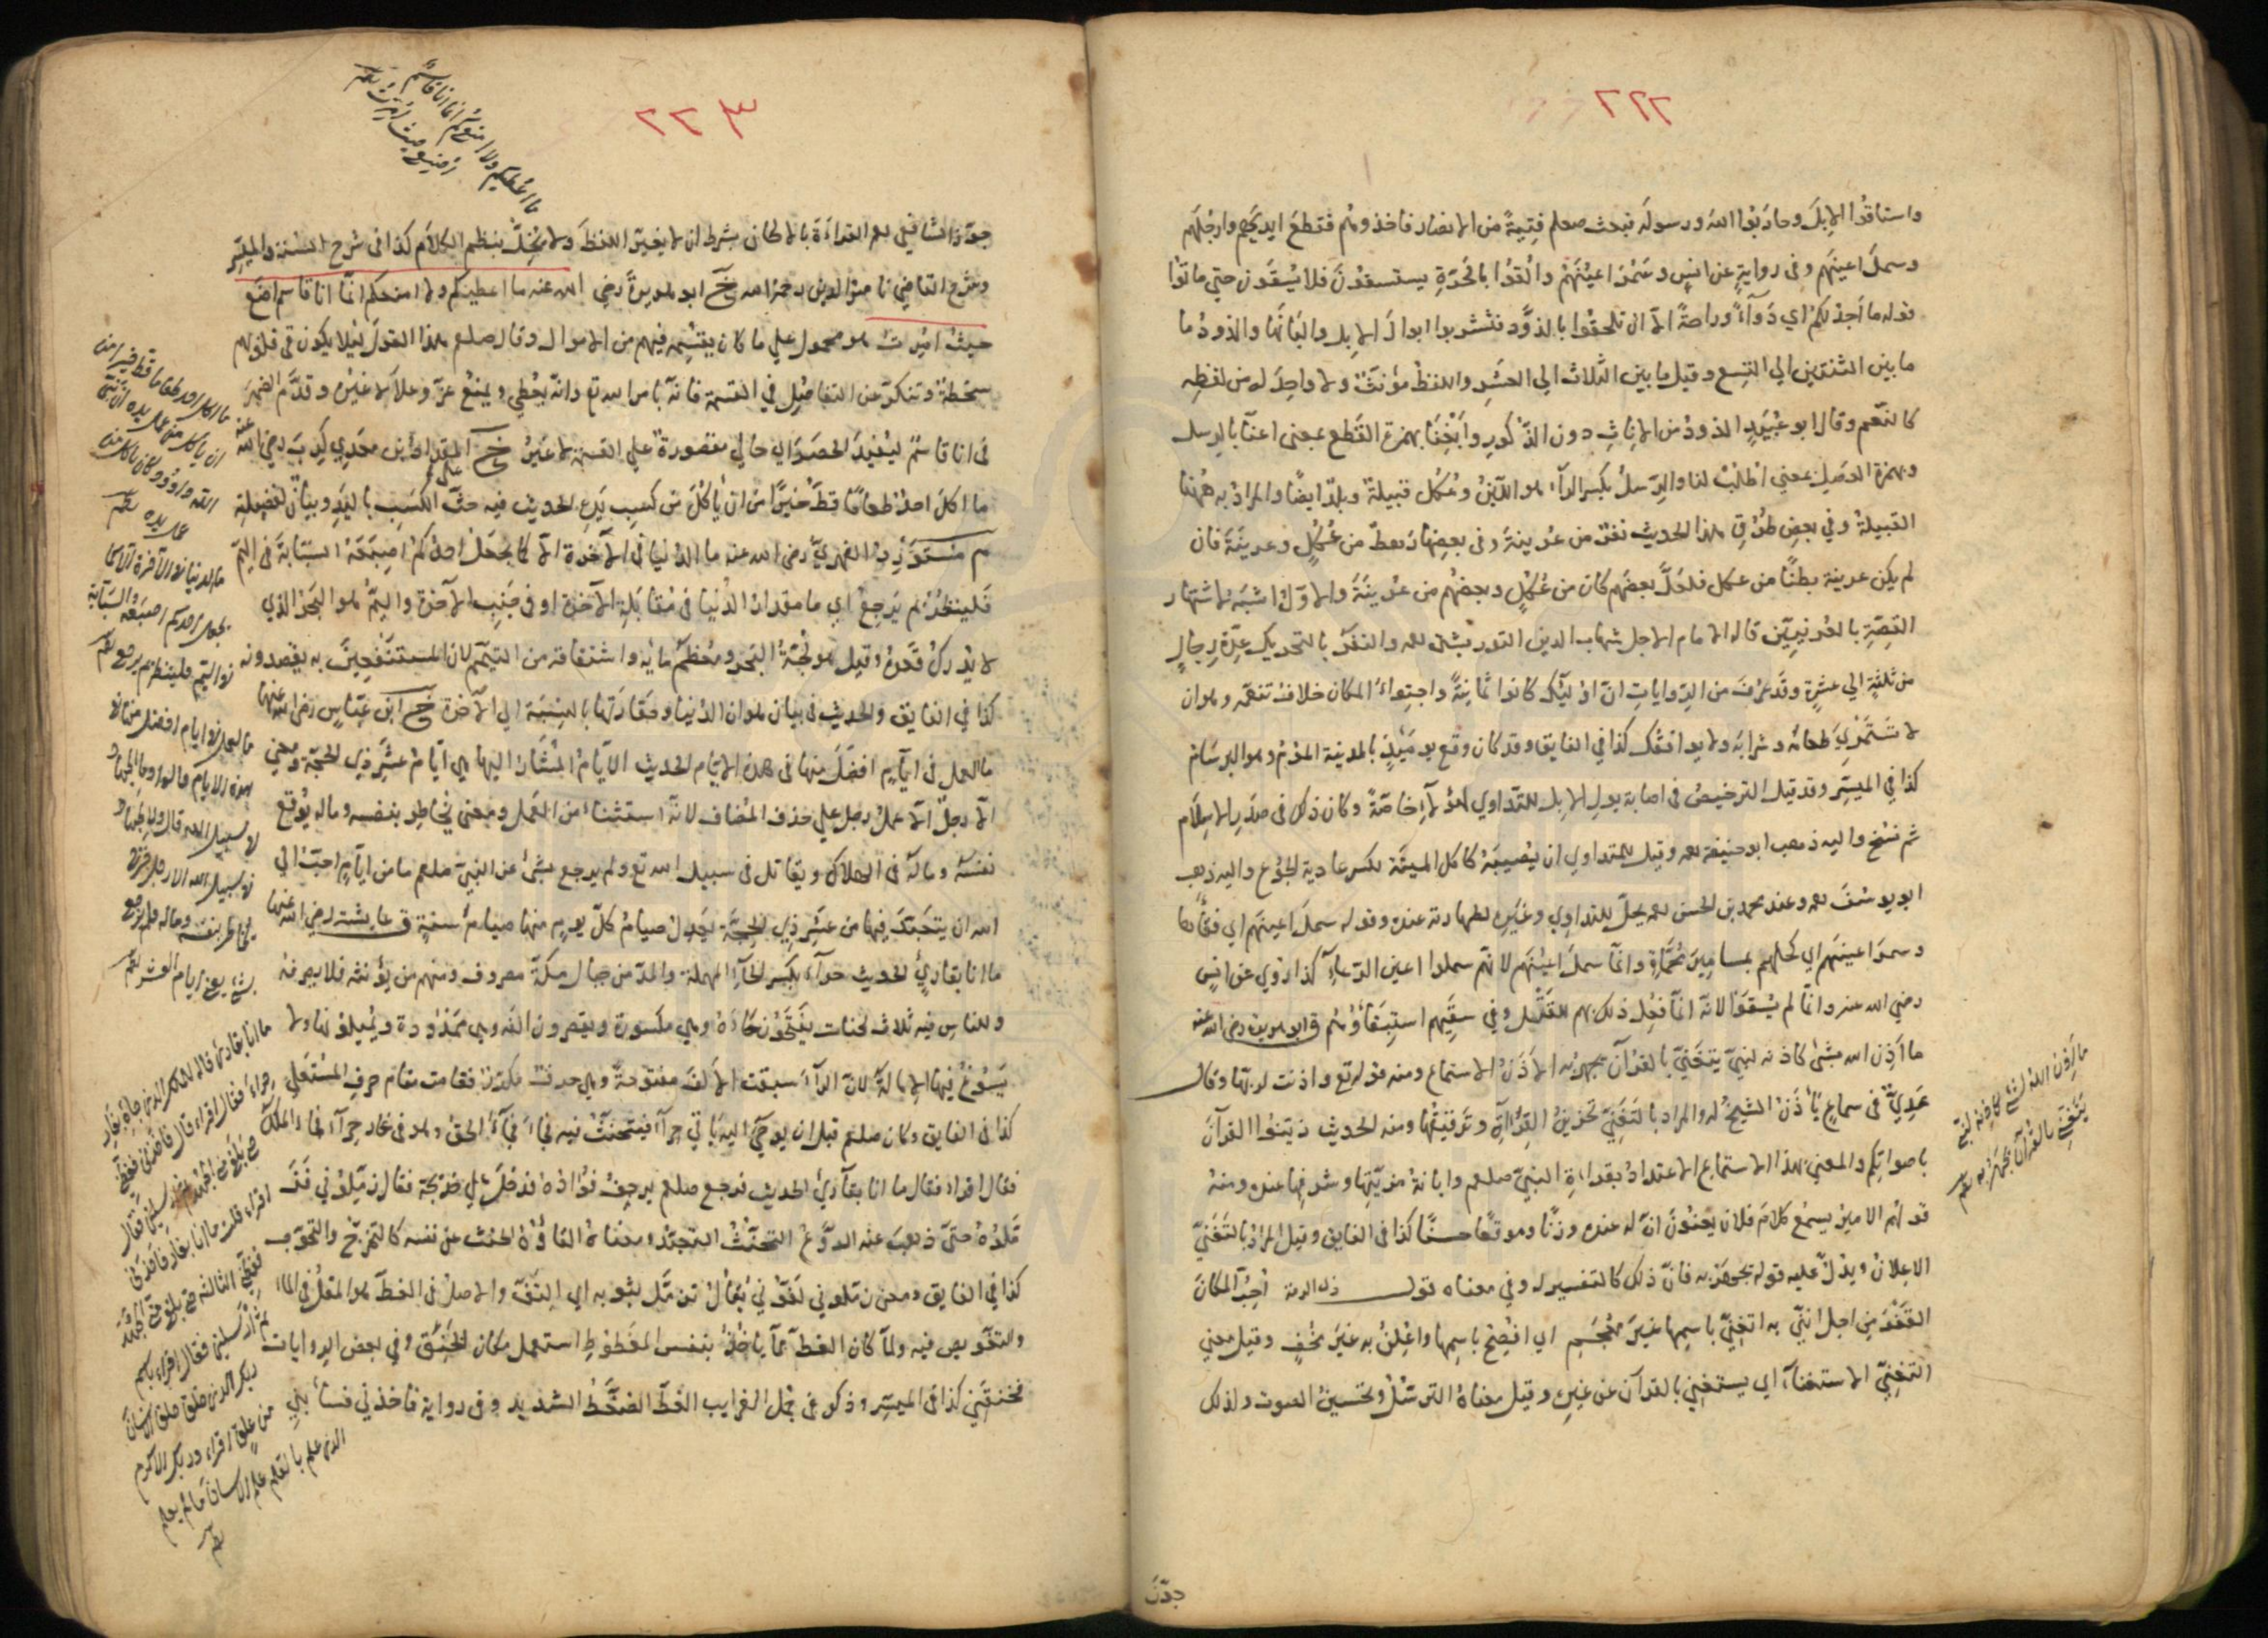 ٢٢٢
واستاقوا الابل وحاربوا الله ورسوله فبعث صلعم فتية من الانصار فاخذوهم فقطع ايديهم وارجلهم
وسمل اعينهم وفي رواية عن انس وسمر اعينهم والقوا بالحرة يستسقون فلا يسقون حتي ماتوا
قوله ما اجد لكم اي دواء وراحة الا ان تلحقوا بالذود فتشربوا ابوال الابل والبانها والذود ما
ما بين الثنتين الي التسع وقيل ما بين الثلاث الي العشر واللفظ مؤنث ولا واحد له من لفظه
كالنعم وقال ابو عبيد الذود من الاناث دون الذكور وابغنا بهمزة القطع بمعني اعنا بالرسل
وبهمزة الوصل بمعني اطلب لنا والرسل بكسر الراء هو اللبن وعكل قبيلة وبلد ايضا والمراد به ههنا
القبيلة وفي بعض طرق هذا الحديث نفر من عرينة وفي بعضها رهط من عكل وعرينة فان
لم يكن عرينة بطنا من عكل فلعل بعضهم كان من عكل وبعضهم من عرينة والاول اشبه لاشتهار
القصة بالعرنيين قاله الامام الاجل شهاب الدين التوربشتي رحمه والنفر بالتحريك عدة رجال
من ثلثة الي عشرة وقد عرف من الروايات ان اولئك كانوا ثمانية واجتواء المكان خلاف تنعمه وهو ان
لا تستمري طعامه وشرابه ولا يوافقك كذا في الفايق وقد كان وقع يومئذ بالمدينة الموم وهو البرسام
كذا في الميسر وقد قيل الترخيص في اصابة بول الابل للتداوي لهؤلاء خاصة وكان ذلك في صدر الاسلام
ثم نسخ واليه ذهب ابو حنيفة رحمه وقيل للمتداوي ان يصيبه كاكل الميتة لكسر عادية الجوع واليه ذهب
ابو يوسف رحمه وعند محمد بن الحسن رحمه يحل للتداوي وغيره لطهارته عنده وقوله سمل اعينهم اي فقأها
وسمر اعينهم اي كحلهم بمسامير محماة وانما سمل اعينهم لانهم سملوا اعين الرعاء كذا روي عن انس
رضي الله عنه وانما لم يسقوا لانه انما فعل ذلك بهم للقتل وفي سقيهم استبقاؤهم ق ابو هريرة رضي الله عنه
ما اذن الله بشئ كاذنه لنبي يتغني بالقرآن يجهر به الاذن الاستماع ومنه قوله تع واذنت لربها وقال
عدي في سماع يأذن الشيخ له والمراد بالتغني تحزين القراءة وترقيقها ومنه الحديث زينوا القرآن
باصواتكم والمعني بهذا الاستماع الاعتداد بقراءة النبي صلعم وابانة مزيتها وشرفها عنده ومنه
قولهم الامير يسمع كلام فلان يعنون ان له عنده وزنا وموقعا حسنا كذا في الفايق وقيل المراد بالتغني
الاعلان ويدل عليه قوله يجهر به فان ذلك كالتفسير له وفي معناه قول ذي الرمة احب المكان
القفر من اجل انني به اتغني باسمها غير معجم اي افصح باسمها واعلن به غير مخف وقيل معني
التغني الاستغناء اي يستغني بالقرآن عن غيره وقيل معناه الترسل وتحسين الصوت ولذلك
جوز
ما اذن الله لشئ كاذنه لنبي
يتغني بالقرآن يجهر به
٢٢٣
جوز الشافعي رحمه القراءة بالالحان بشرط ان لا يغير اللفظ ولا يخل بنظم الكلام كذا في شرح السنة والميسر
وشرح القاضي ناصر الدين رحمه الله خ ابو هريرة رضي الله عنه ما اعطيكم ولا امنعكم انما انا قاسم اضع
حيث امرت هو محمول علي ما كان يقسمه فيهم من الاموال وقال صلعم هذا القول لئلا يكون في قلوبهم
سخطة وتنكر عن التفاضل في القسمة فانه بامر الله تع وانه يعطي ويمنع عز وعلا لا غيره وقدم الضمير
في انا قاسم ليفيد الحصر اي حالي مقصورة علي القسمة لا غير خ المقدام بن معدي كرب رضي الله عنه
ما اكل احد طعاما قط خيرا من ان يأكل من كسب يده الحديث فيه حث علي الكسب باليد وبيان لفضيلته
م مستورد الفهري رضي الله عنه ما الدنيا في الآخرة الا كما يجعل احدكم اصبعه السبابة في اليم
فلينظر بم يرجع اي ما مقدار الدنيا في مقابلة الآخرة او في جنب الآخرة واليم هو البحر الذي
لا يدرك قعره وقيل هو لجة البحر ومعظم مائه واشتقاقه من التيمم لان المستنفعين به يقصدونه
كذا في الفايق والحديث في بيان هوان الدنيا وحقارتها بالنسبة الي الآخرة خ ابن عباس رضي الله عنهما
ما العمل في ايام افضل منها في هذه الايام الحديث الايام المشار اليها هي ايام عشر ذي الحجة ومعني
الا رجل الا عمل رجل علي حذف المضاف لانه استثناء من العمل ومعني يخاطر بنفسه وماله يوقع
نفسه وماله في الهلاك ويقاتل في سبيل الله تع ولم يرجع بشئ عن النبي صلعم ما من ايام احب الي
الله ان يتعبد فيها من عشر ذي الحجة يعدل صيام كل يوم منها صيام سنة ق عايشة رضي الله عنها
ما انا بقارئ الحديث حراء بكسر الحاء المهملة والمد من جبال مكة معروف ومنهم من يؤنثه فلا يصرفه
وللناس فيه ثلاث لحنات يفتحون حاءه وهي مكسورة ويقصرون الفه وهي ممدودة ويميلونها ولا
يسوغ فيها الامالة لان الراء سبقت الالف مفتوحة وهي حرف مكرر فقامت مقام حرف المستعلي
كذا في الفايق وكان صلعم قبل ان يوحي اليه يأتي حراء فيتحنث فيه فجاءه الحق وهو في غار حراء فجاءه الملك
فقال اقراء فقال ما انا بقارئ الحديث فرجع صلعم يرجف فؤاده فدخل علي خديجة فقال زملوني
فزملوه حتي ذهب عنه الروع التحنث التعبد ومعناه القاؤه الحنث عن نفسه كالتحرج والتحوب
كذا في الفايق ومعني زملوني لففوني يقال تزمل بثوبه اي التف والاصل في الغط هو المقل في الماء
والتغويص فيه ولما كان الغط مما يأخذ بنفس المغطوط استعمل مكان الخنق وفي بعض الروايات
فخنقني كذا في الميسر وذكر في جمل الغرايب الغط الضغط الشديد وفي رواية فاخذني فسأبني
ما اعطيكم ولا امنعكم انما انا قاسم
اضع حيث امرت
ما اكل احد طعاما قط خيرا من
ان يأكل من عمل يده ان نبي
الله داود كان يأكل من
عمل يده
ما الدنيا في الآخرة الا كما
يجعل احدكم اصبعه السبابة
في اليم فلينظر بم يرجع
ما العمل في ايام افضل منها في
هذه الايام قالوا ولا الجهاد
في سبيل الله قال ولا الجهاد
في سبيل الله الا رجل خرج
يخاطر بنفسه وماله فلم يرجع
بشئ يعني ايام العشر
ما انا بقارئ قاله للملك الذي جاءه بغار
حراء فقال اقراء قال فاخذني فغطني
حتي بلغ مني الجهد ثم ارسلني فقال
اقراء فقلت ما انا بقارئ فاخذني
فغطني الثالثة حتي بلغ مني الجهد
ثم ارسلني فقال اقراء باسم
ربك الذي خلق خلق الانسان
من علق اقراء وربك الاكرم
الذي علم بالقلم علم الانسان ما لم يعلم